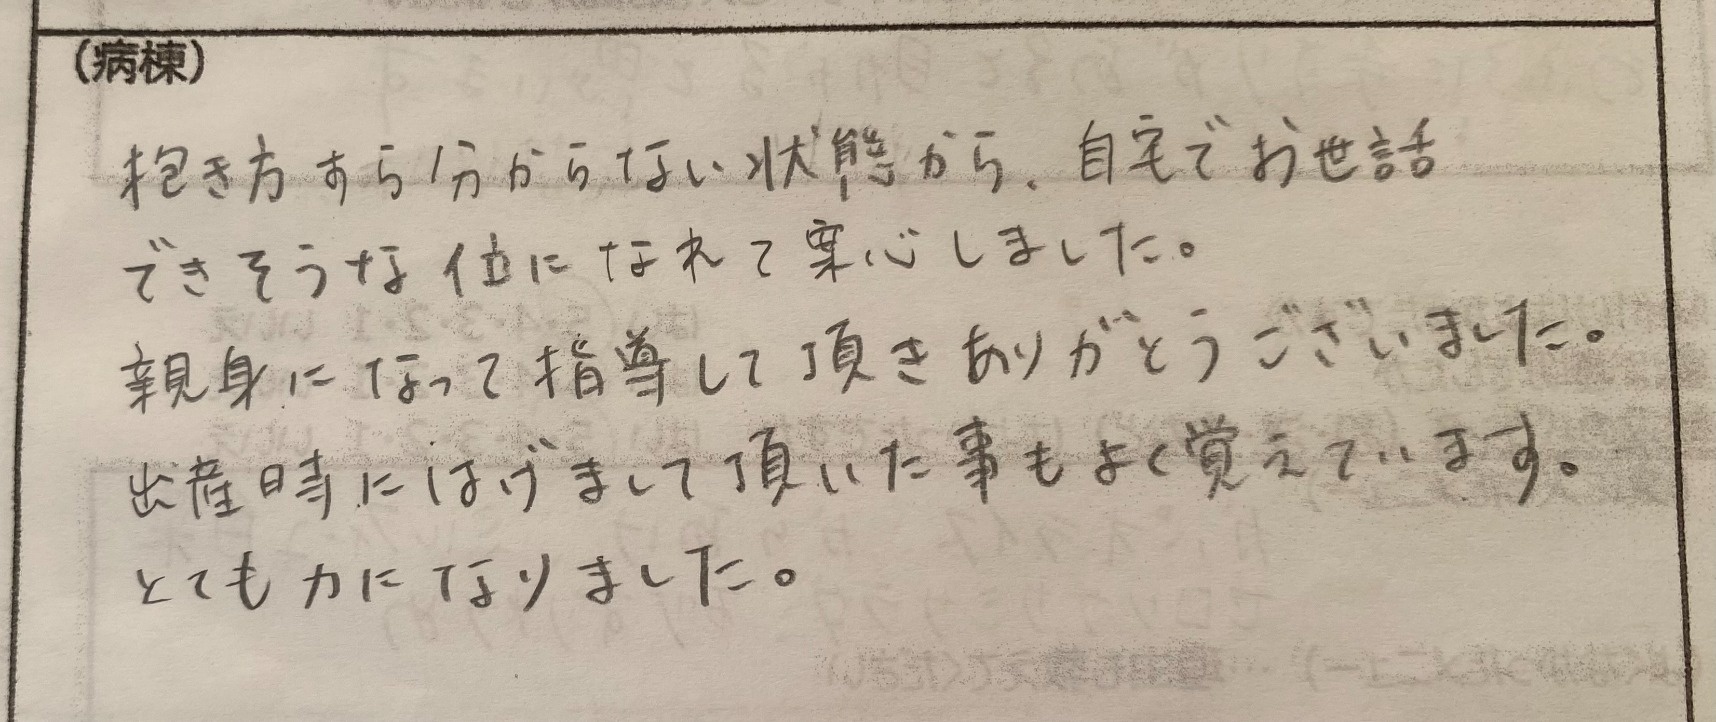 (病棟)
抱き方すら分からない状態から、自宅でお世話
できそうな位になれて安心しました。
親身になって指導して頂きありがとうございました。
出産時にはげまして頂いた事もよく覚えています。
とても力になりました。